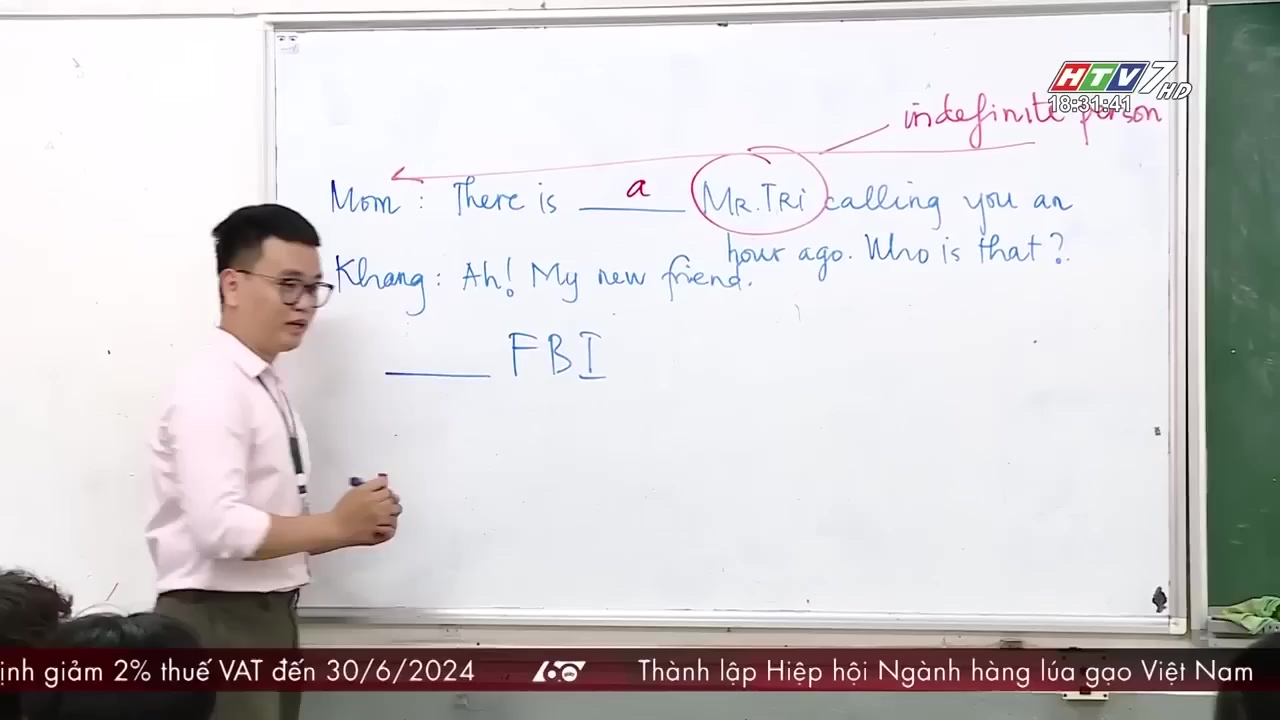 HTV7 HD
18:31:41
indefinite person
Mom : There is a MR.TRi calling you an
hour ago. Who is that?
Khang : Ah! My new friend.
____ FBI
ịnh giảm 2% thuế VAT đến 30/6/2024 60 Thành lập Hiệp hội Ngành hàng lúa gạo Việt Nam